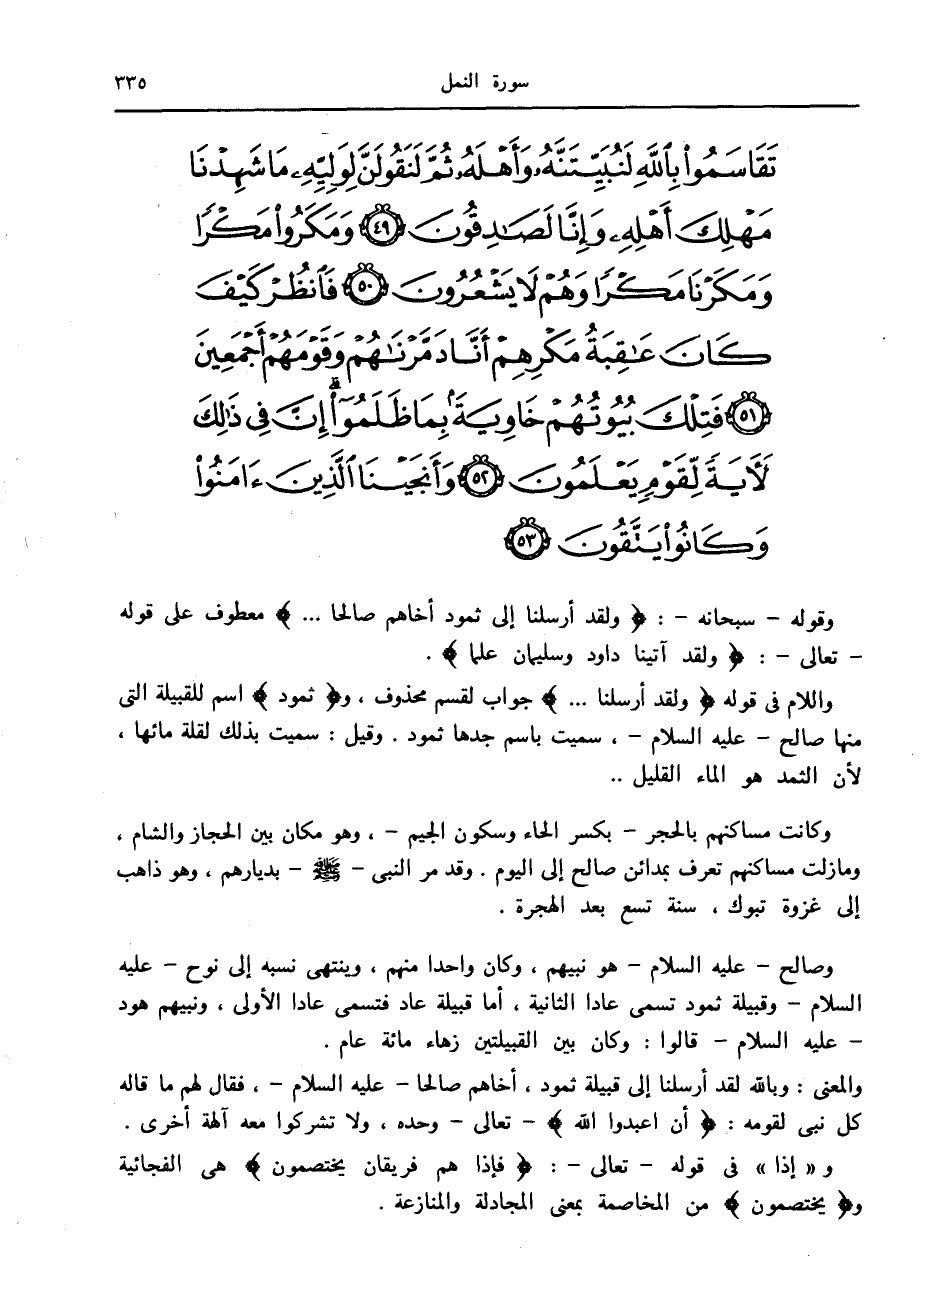 سورة النمل ٣٣٥
تَقَاسَمُوا۟ بِٱللَّهِ لَنُبَيِّتَنَّهُۥ وَأَهْلَهُۥ ثُمَّ لَنَقُولَنَّ لِوَلِيِّهِۦ مَا شَهِدْنَا
مَهْلِكَ أَهْلِهِۦ وَإِنَّا لَصَٰدِقُونَ ﴿٤٩﴾ وَمَكَرُوا۟ مَكْرًا
وَمَكَرْنَا مَكْرًا وَهُمْ لَا يَشْعُرُونَ ﴿٥٠﴾ فَٱنظُرْ كَيْفَ
كَانَ عَٰقِبَةُ مَكْرِهِمْ أَنَّا دَمَّرْنَٰهُمْ وَقَوْمَهُمْ أَجْمَعِينَ
﴿٥١﴾ فَتِلْكَ بُيُوتُهُمْ خَاوِيَةًۢ بِمَا ظَلَمُوٓا۟ ۗ إِنَّ فِى ذَٰلِكَ
لَءَايَةً لِّقَوْمٍ يَعْلَمُونَ ﴿٥٢﴾ وَأَنجَيْنَا ٱلَّذِينَ ءَامَنُوا۟
وَكَانُوا۟ يَتَّقُونَ ﴿٥٣﴾
وقوله – سبحانه – : ﴿ ولقد أرسلنا إلى ثمود أخاهم صالحا ... ﴾ معطوف على قوله
– تعالى – : ﴿ ولقد آتينا داود وسليمان علما ﴾ .
واللام فى قوله ﴿ ولقد أرسلنا ... ﴾ جواب لقسم محذوف ، و﴿ ثمود ﴾ اسم للقبيلة التى
منها صالح – عليه السلام – ، سميت باسم جدها ثمود . وقيل : سميت بذلك لقلة مائها ،
لأن الثمد هو الماء القليل ..
وكانت مساكنهم بالحجر – بكسر الحاء وسكون الجيم – ، وهو مكان بين الحجاز والشام ،
ومازلت مساكنهم تعرف بمدائن صالح إلى اليوم . وقد مر النبى – ﷺ – بديارهم ، وهو ذاهب
إلى غزوة تبوك ، سنة تسع بعد الهجرة .
وصالح – عليه السلام – هو نبيهم ، وكان واحدا منهم ، وينتهى نسبه إلى نوح – عليه
السلام – وقبيلة ثمود تسمى عادا الثانية ، أما قبيلة عاد فتسمى عادا الأولى ، ونبيهم هود
– عليه السلام – قالوا : وكان بين القبيلتين زهاء مائة عام .
والمعنى : وبالله لقد أرسلنا إلى قبيلة ثمود ، أخاهم صالحا – عليه السلام – ، فقال لهم ما قاله
كل نبى لقومه : ﴿ أن اعبدوا الله ﴾ – تعالى – وحده ، ولا تشركوا معه آلهة أخرى .
و « إذا » فى قوله – تعالى – : ﴿ فإذا هم فريقان يختصمون ﴾ هى الفجائية
و﴿ يختصمون ﴾ من المخاصمة بمعنى المجادلة والمنازعة .